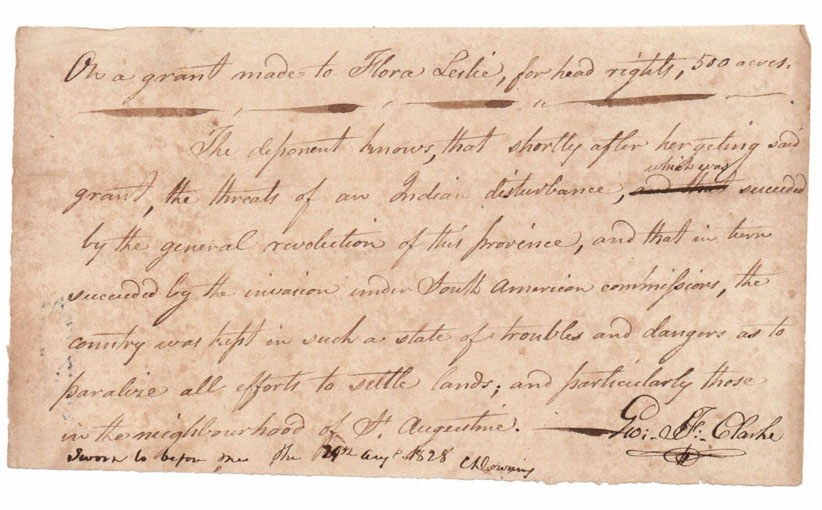 On a grant made to Flora Leslie, for head rights, 500 acres.
The deponent knows, that shortly after her geting said
grant, the threats of an Indian disturbance, and that which was succeeded
by the general revolution of this province, and that in turn
succeeded by the invasion under South American commissions, the
country was kept in such a state of troubles and dangers as to
paralize all efforts to settle lands; and particularly those
in the neighbourhood of St. Augustine.
Geo: J. F. Clarke
Sworn to before me the Augt. 1828 Downing